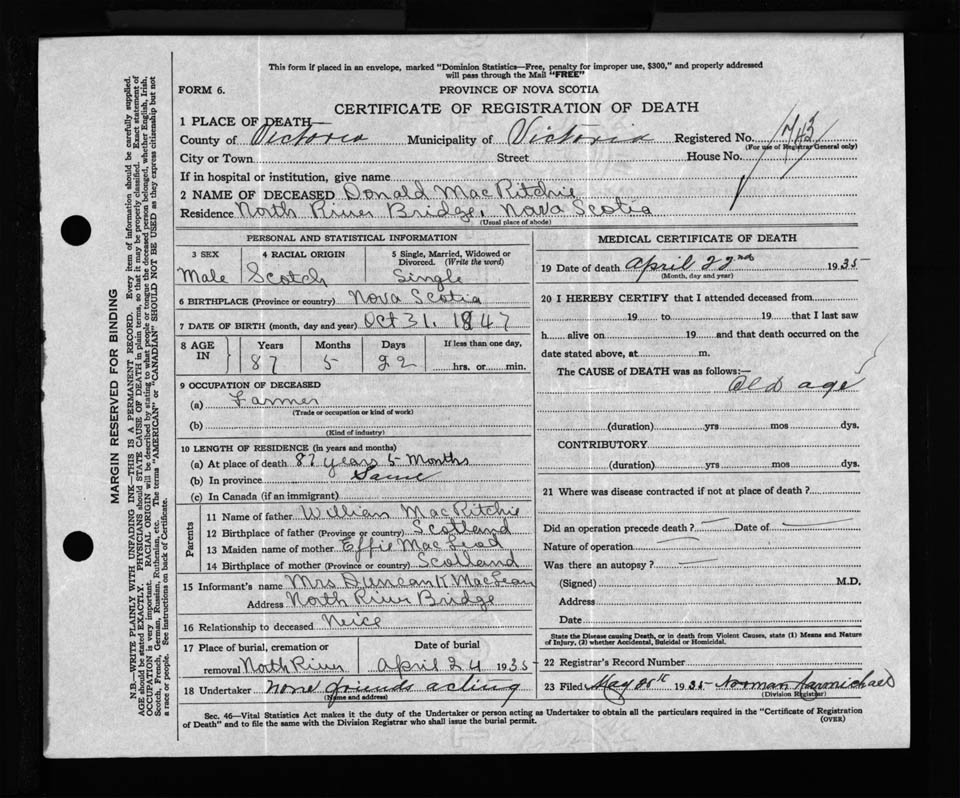 This form if placed in an envelope, marked "Dominion Statistics—Free, penalty for improper use, $300," and properly addressed
will pass through the Mail "FREE"
FORM 6. PROVINCE OF NOVA SCOTIA
CERTIFICATE OF REGISTRATION OF DEATH
1 PLACE OF DEATH
County of Victoria Municipality of Victoria Registered No. 743
(For use of Registrar General only)
City or Town Street House No.
If in hospital or institution, give name
2 NAME OF DECEASED Donald MacRitchie
Residence North River Bridge, Nova Scotia
(Usual place of abode)
PERSONAL AND STATISTICAL INFORMATION
3 SEX 4 RACIAL ORIGIN 5 Single, Married, Widowed or
Divorced. (Write the word)
Male Scotch Single
6 BIRTHPLACE (Province or country) Nova Scotia
7 DATE OF BIRTH (month, day and year) Oct 31, 1847
8 AGE IN Years Months Days If less than one day,
87 5 22 hrs. or min.
9 OCCUPATION OF DECEASED
(a) Farmer
(Trade or occupation or kind of work)
(b)
(Kind of industry)
10 LENGTH OF RESIDENCE (in years and months)
(a) At place of death 87 years 5 Months
(b) In province Same
(c) In Canada (if an immigrant)
Parents
11 Name of father William MacRitchie
12 Birthplace of father (Province or country) Scotland
13 Maiden name of mother Effie MacLeod
14 Birthplace of mother (Province or country) Scotland
15 Informant's name Mrs Duncan K MacLean
Address North River Bridge
16 Relationship to deceased Neice
17 Place of burial, cremation or Date of burial
removal North River April 24 1935
18 Undertaker none friends acting
(Name and address)
MEDICAL CERTIFICATE OF DEATH
19 Date of death April 22nd 1935
(Month, day and year)
20 I HEREBY CERTIFY that I attended deceased from
19 to 19 that I last saw
h alive on 19 and that death occurred on the
date stated above, at m.
The CAUSE of DEATH was as follows:—
Old age
(duration) yrs mos dys.
CONTRIBUTORY
(duration) yrs mos dys.
21 Where was disease contracted if not at place of death?
Did an operation precede death? — Date of —
Nature of operation —
Was there an autopsy? —
(Signed) M.D.
Address
Date
State the Disease causing Death, or in death from Violent Causes, state (1) Means and Nature
of Injury, (2) whether Accidental, Suicidal or Homicidal.
22 Registrar's Record Number
23 Filed May 1935 Norman Carmichael
(Division Registrar)
Sec. 46—Vital Statistics Act makes it the duty of the Undertaker or person acting as Undertaker to obtain all the particulars required in the "Certificate of Registration
of Death" and to file the same with the Division Registrar who shall issue the burial permit. (OVER)
MARGIN RESERVED FOR BINDING
N.B.—WRITE PLAINLY WITH UNFADING INK—THIS IS A PERMANENT RECORD. Every item of information should be carefully supplied.
AGE should be stated EXACTLY. PHYSICIANS should STATE CAUSE OF DEATH in plain terms, so that it may be properly classified. Exact statement of
OCCUPATION is very important. RACIAL ORIGIN will be described by stating to what people or tongue the deceased person belonged, whether English, Irish,
Scotch, French, German, Russian, Ruthenian, etc. The terms "AMERICAN" or "CANADIAN" SHOULD NOT BE USED as they express citizenship but not
a race or people. See instructions on back of Certificate.